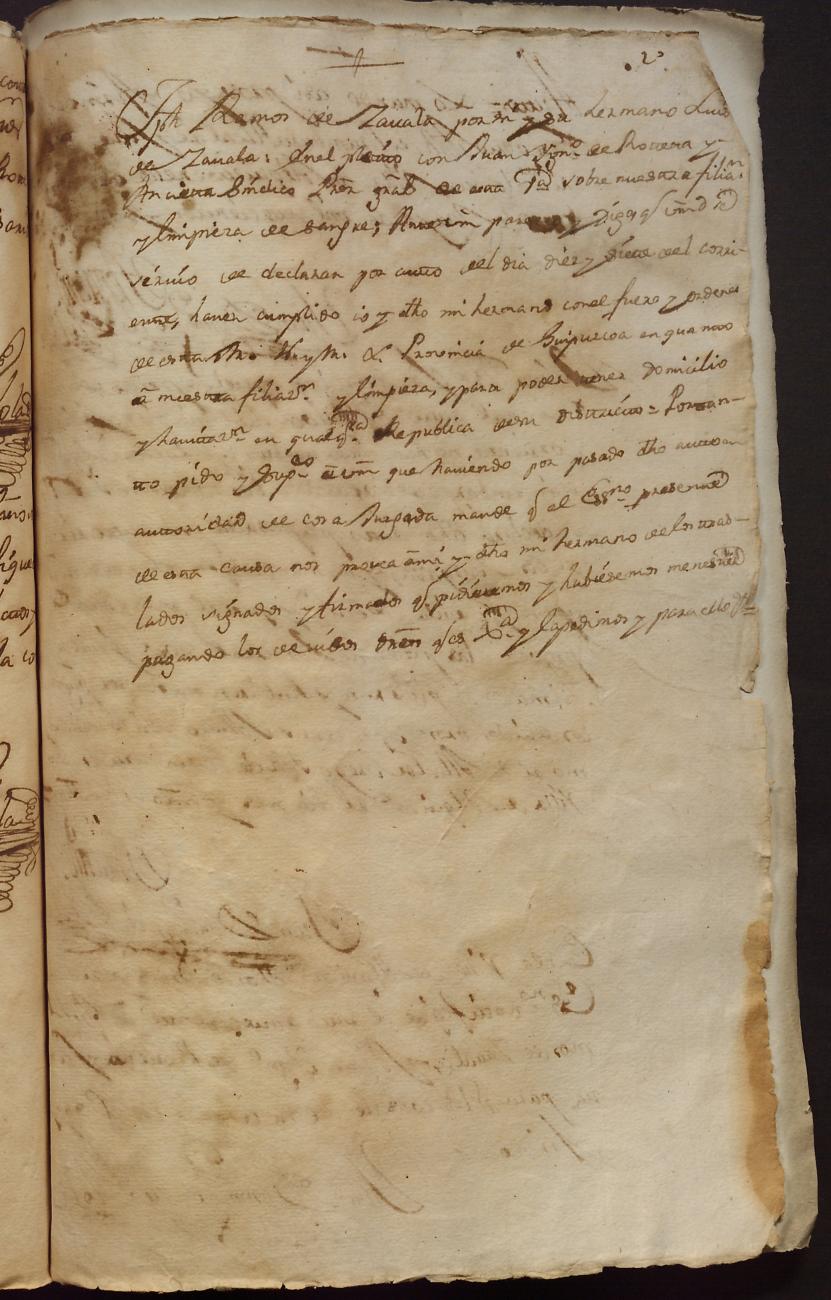 2º
Jph Ramos de Zavala por mi y en hermano Luis
de Zavala: En el pleito con Juan Anttº de Rottetta y
Sindico Prör gñral de esta sobre nuestra filiaºn
y limpieza de sangre; Ante vm parezco y digo q vmd se
sirvio de declarar por autto del dia diez y siette del corri-
ente, haver cumplido io y dho mi hermano con el fuero y ordenes
de esta M. N. y M. L. Provincia de Guipuzcoa en quanto
a nuestra filiazºn y limpieza, y para poder tener domicilio
y havitazºn en qualqª Republica de su distritto = Portan-
tto pido y supcº a vm que haviendo por pasado dho autto en
autoridad de cosa Juzgada mande q el Essnº presente
de esta causa nos provea a mi y dho mi hermano de los tras-
lados signados y firmados q pidieremos y hubieremos menester
pagando los devidos drechos q es y la pedimos y para ello &ª=